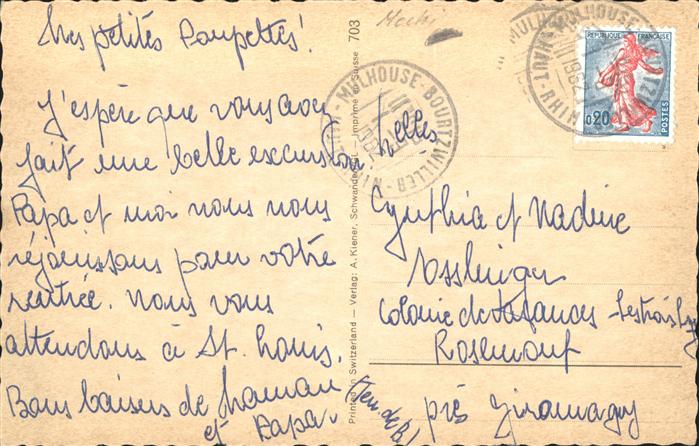 Mes petites Poupettes!
J'espère que vous avez
fait une belle excursion.
Papa et moi nous nous
réjouissons pour votre
rentrée. Nous vous
attendons à St. Louis.
Bons baisers de Maman
et Papa.
Printed in Switzerland — Verlag: A. Kiener, Schwanden — Imprimé en Suisse 703
MULHOUSE-BOURTZWILLER
HAUT-RHIN
REPUBLIQUE FRANÇAISE
0,20
POSTES
Melles
Cynthia et Nadine
Colonie de Vacances
Rosemont
près Giromagny
(Terr de B)